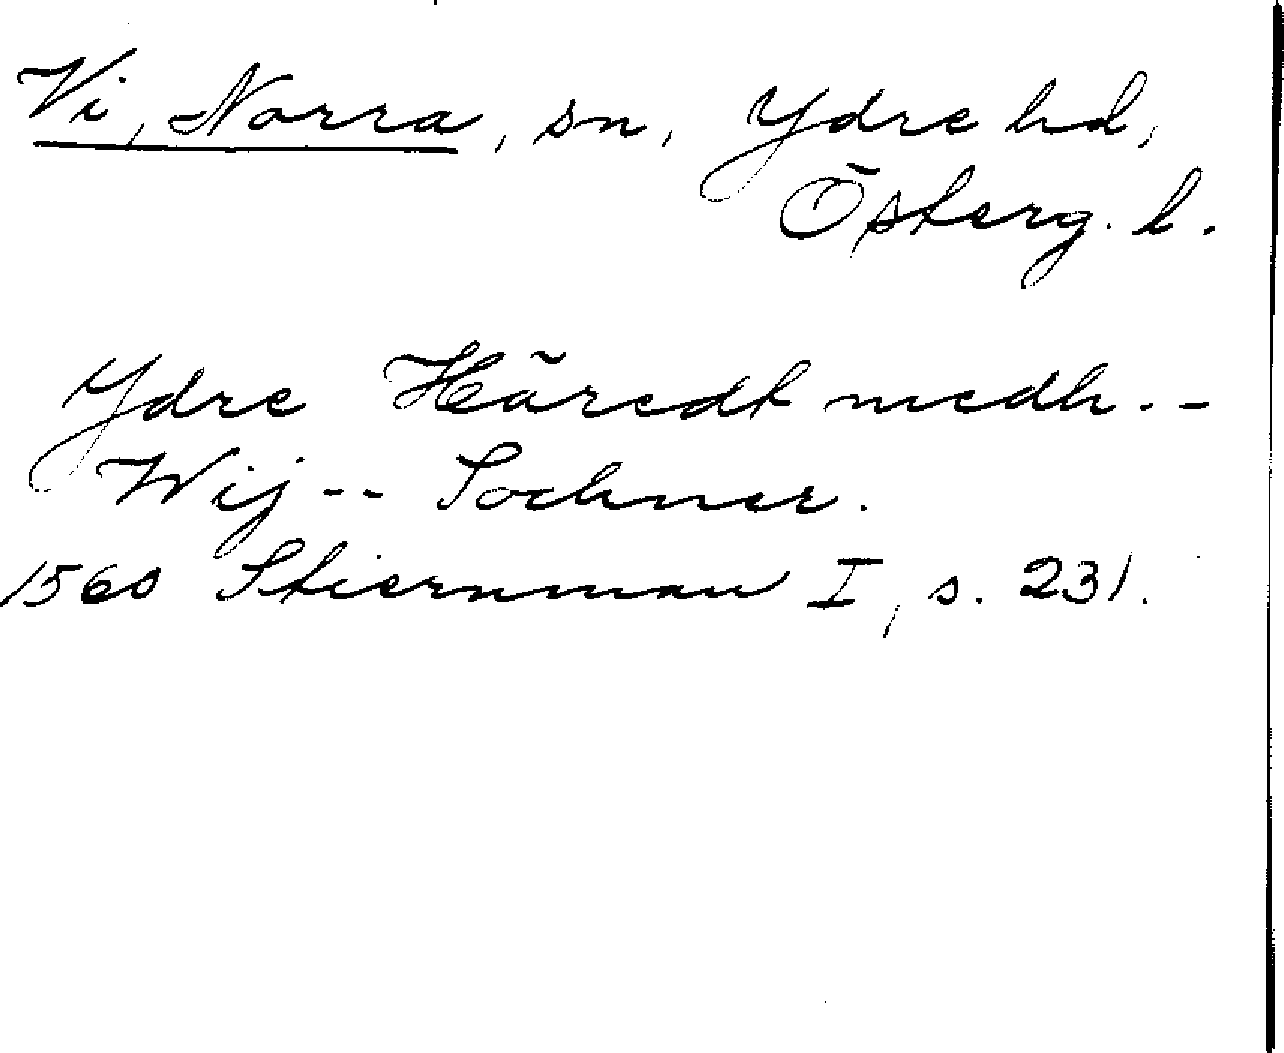 Vi, Norra, sn, Ydre hd,
Österg. l.
Ydre Häredt medh --
Wij -- Sochner.
1560 Stiernman I, s. 231.